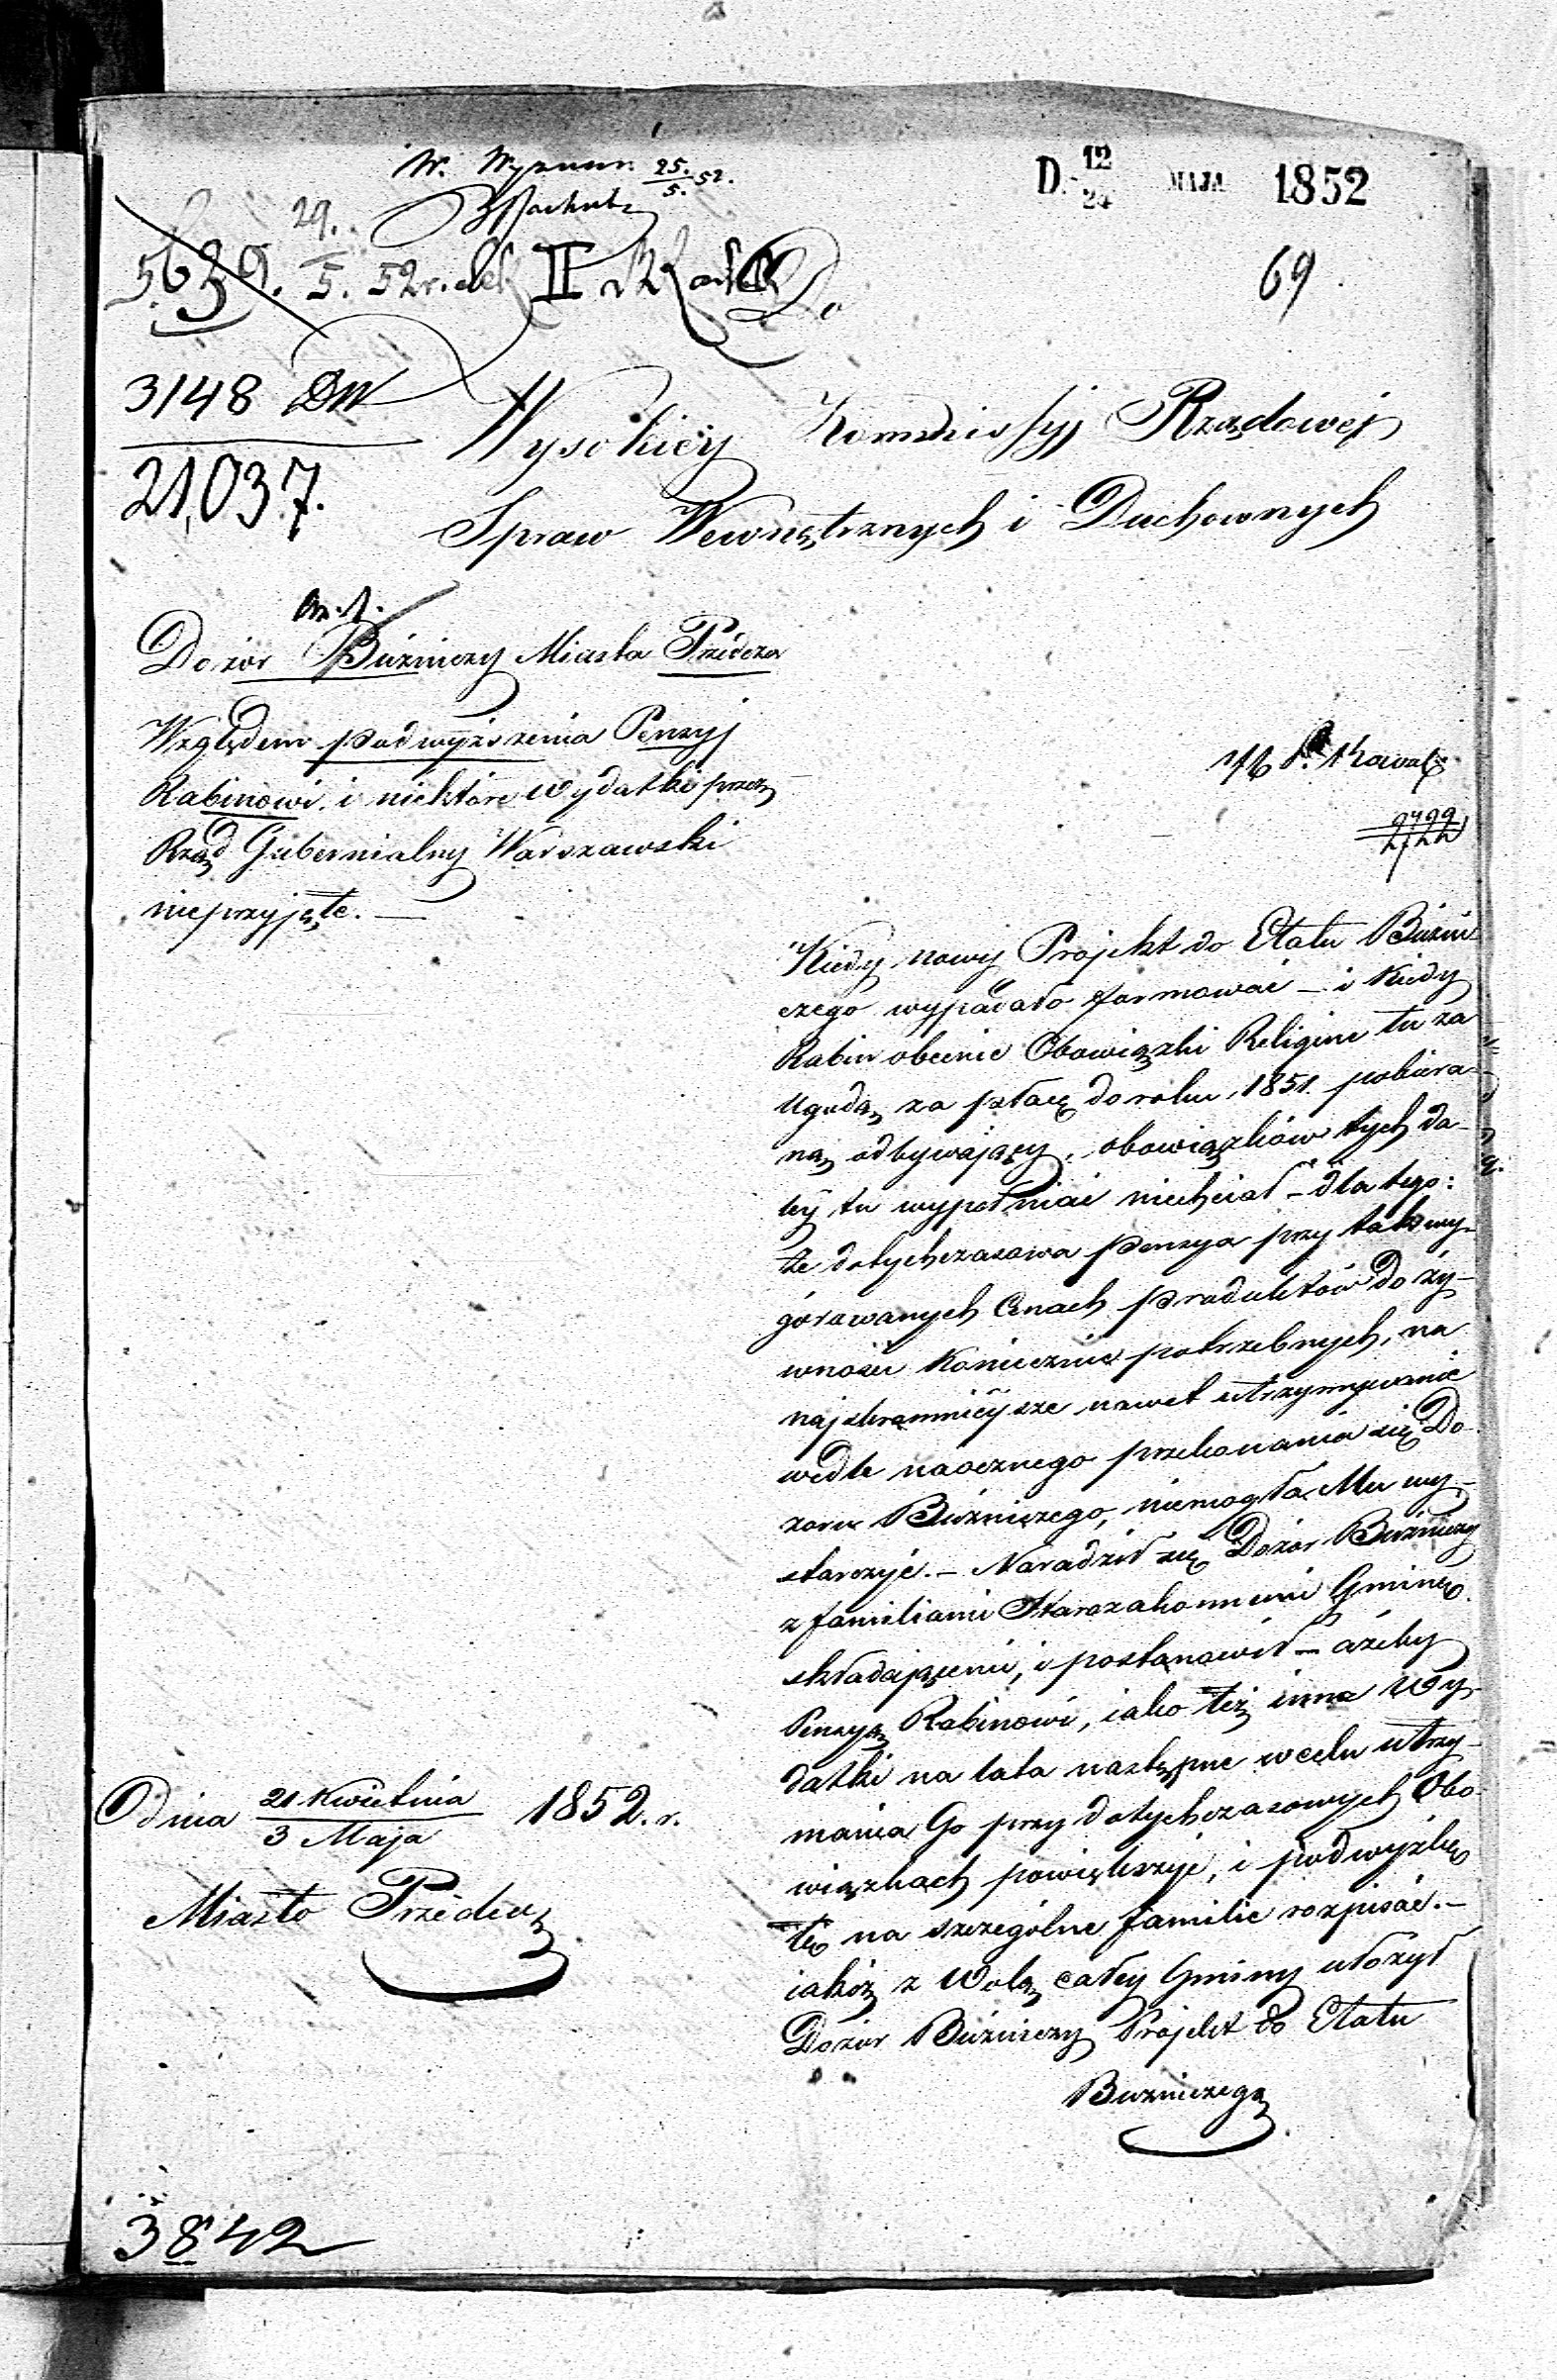 D. 12/24 MAJA 1852
69
25./5. 52.
5639. 29./5. 52 r. II
Do
3148 DW
21,037.
Wysokiey Kommissyj Rządowej
Spraw Wewnętrznych i Duchownych
Dozór Bóźniczy Miasta Przedcza
Względem podwyższenia Pensyj
Rabinowi, i niektóre wydatki przez
Rząd Gubernialny Warszawski
nieprzyjęte. —
Kiedy nowy Projekt do Etatu Bóżni
czego wypadało formować — i kiedy
Rabin obecnie Obowiązki Religine tu za
Ugodą za płacę do roku 1851. pobiera-
ną odbywający, obowiązków tych da-
léy tu wypełniać niechciał — dla tego:
że dotychczasowa pensya przy tak wy-
górowanych Cenach produktów do ży-
wności koniecznie potrzebnych, na
najskromnieysze nawet utrzymywanie
wedle naocznego przekonania się Do-
zoru Bóźniczego, niemogła Mu wy-
starczyć. — Naradził się Dozór Bóźniczy
z familiami Starozakonnemi Gminę
składającemi, i postanowił — ażeby
Pensyą Rabinowi, iako też inne Wy-
datki na lata następne w celu utrzy-
mania Go przy dotychczasowych Obo-
wiązkach powiększyć, i podwyżkę
tę na szczególne familie rozpisać. —
iakóż z Wolą całey Gminy ułożył
Dozór Bóźniczy Projekt do Etatu
Bóźniczego
Dnia 21 Kwietnia / 3 Maja 1852. r.
Miasto Przedcz
3842